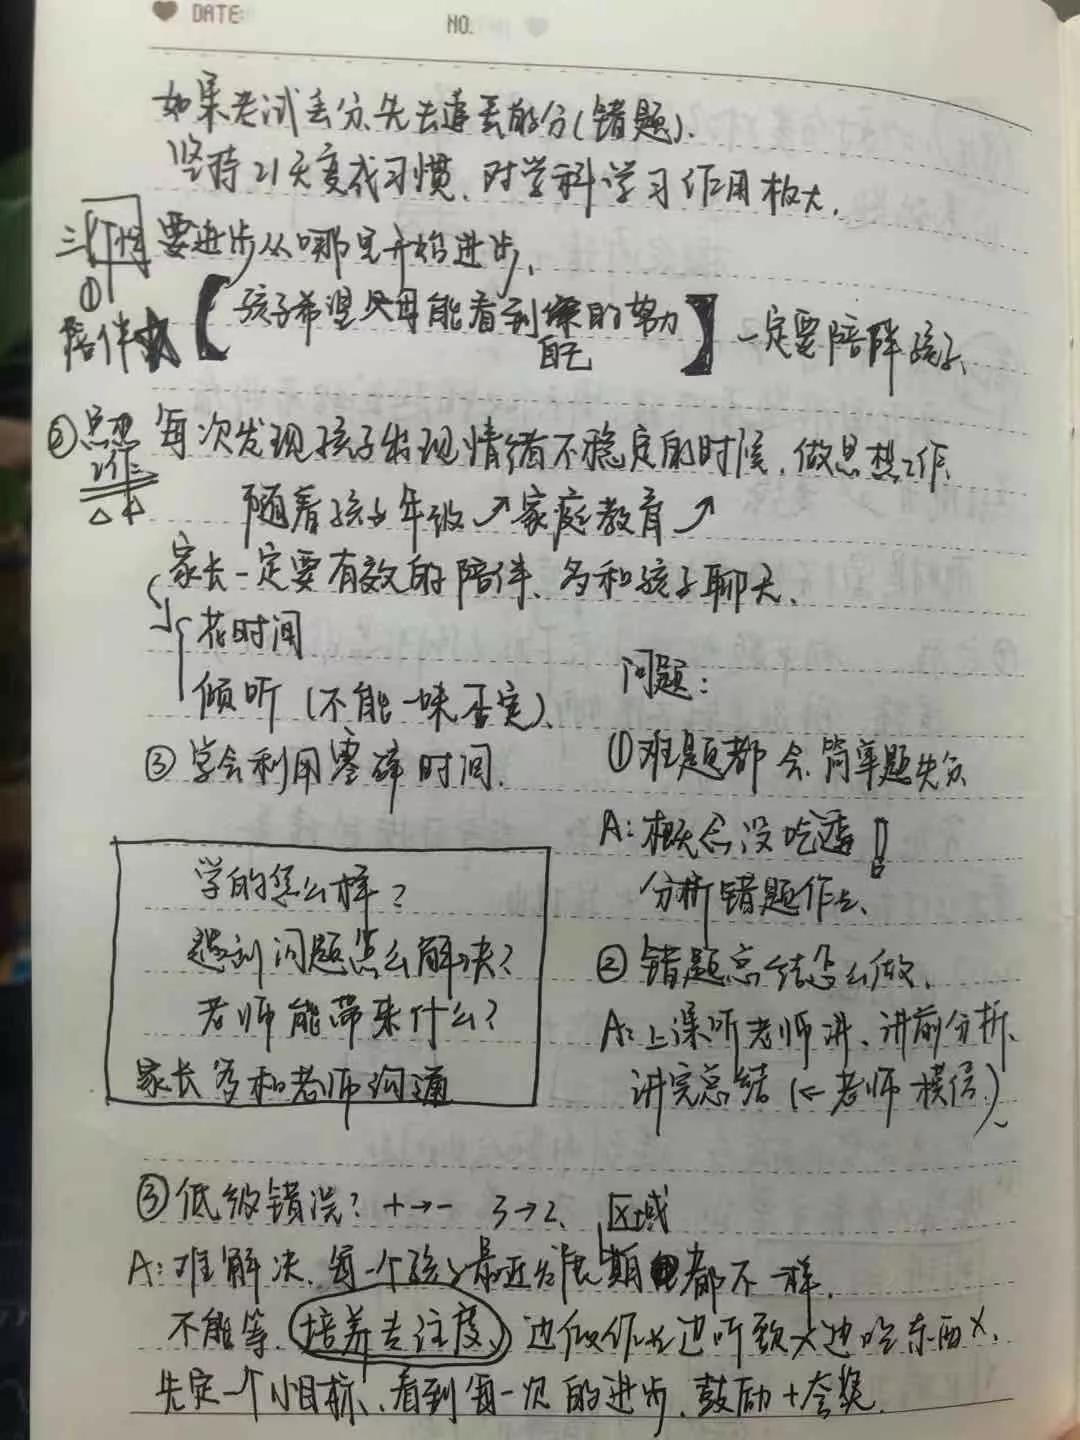 DATE:
NO.
如果考试丢分先去追丢的分(错题).
坚持21天变成习惯,对学科学习作用极大.
三 要进步从哪里开始进步,
①
陪伴 【孩子希望父母能看到自己的努力】一定要陪伴孩子、
②思想工作 每次发现孩子出现情绪不稳定的时候,做思想工作.
随着孩子年级↗家庭教育↗
家长一定要有效的陪伴、多和孩子聊天、
花时间
倾听(不能一味否定)、
③学会利用零碎时间.
学的怎么样?
遇到问题怎么解决?
老师能带来什么?
家长多和老师沟通
问题:
①难题都会.简单题失分
A:概念没吃透!
分析错题作业、
②错题总结怎么做、
A:上课听老师讲、讲前分析、
讲完总结(←老师模仿)、
③低级错误? +→- 3→2、区域
A:难解决.每一个孩子最近发展期都不一样.
不能等.培养专注度、边做作业边听歌×边吃东西×.
先定一个小目标、看到每一次的进步.鼓励+夸奖.